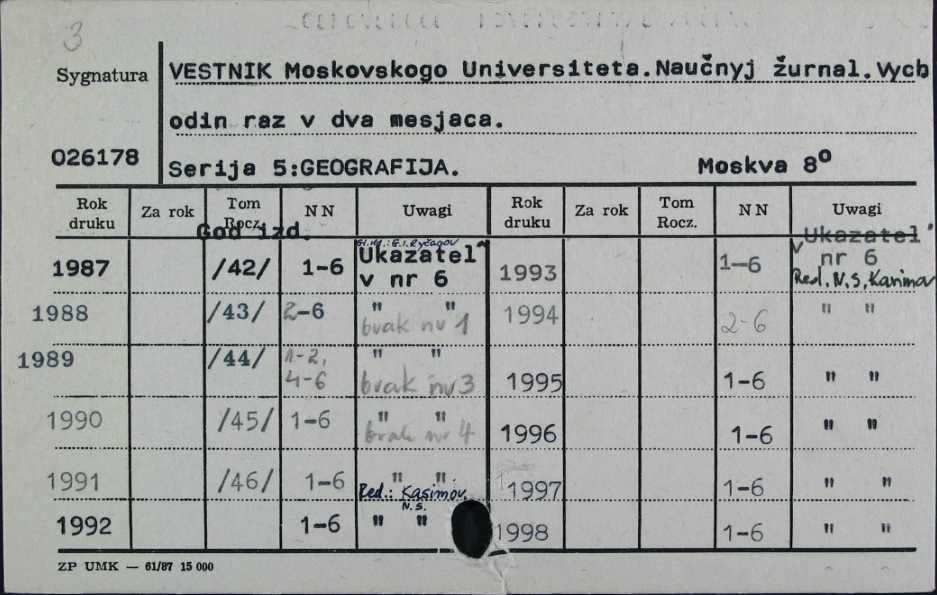 3
Sygnatura
VESTNIK Moskovskogo Universiteta.Naučnyj žurnal.Vych
odin raz v dva mesjaca.
026178
Serija 5:GEOGRAFIJA. Moskva 8º
Rok druku Za rok Tom Rocz. NN Uwagi Rok druku Za rok Tom Rocz. NN Uwagi
God izd.
Gł.red.: G.I. Ryčagov
1987 /42/ 1-6 Ukazatel' v nr 6
1988 /43/ 2-6 " " brak nr 1
1989 /44/ 1-2, 4-6 " " brak nr 3
1990 /45/ 1-6 " " brak nr 4
1991 /46/ 1-6 " " Red.: Kasimov. N.S.
1992 1-6 " "
1993 1-6 Ukazatel' v nr 6 Red. N.S. Kasimov
1994 2-6 " "
1995 1-6 " "
1996 1-6 " "
1997 1-6 " "
1998 1-6 " "
ZP UMK — 61/87 15 000